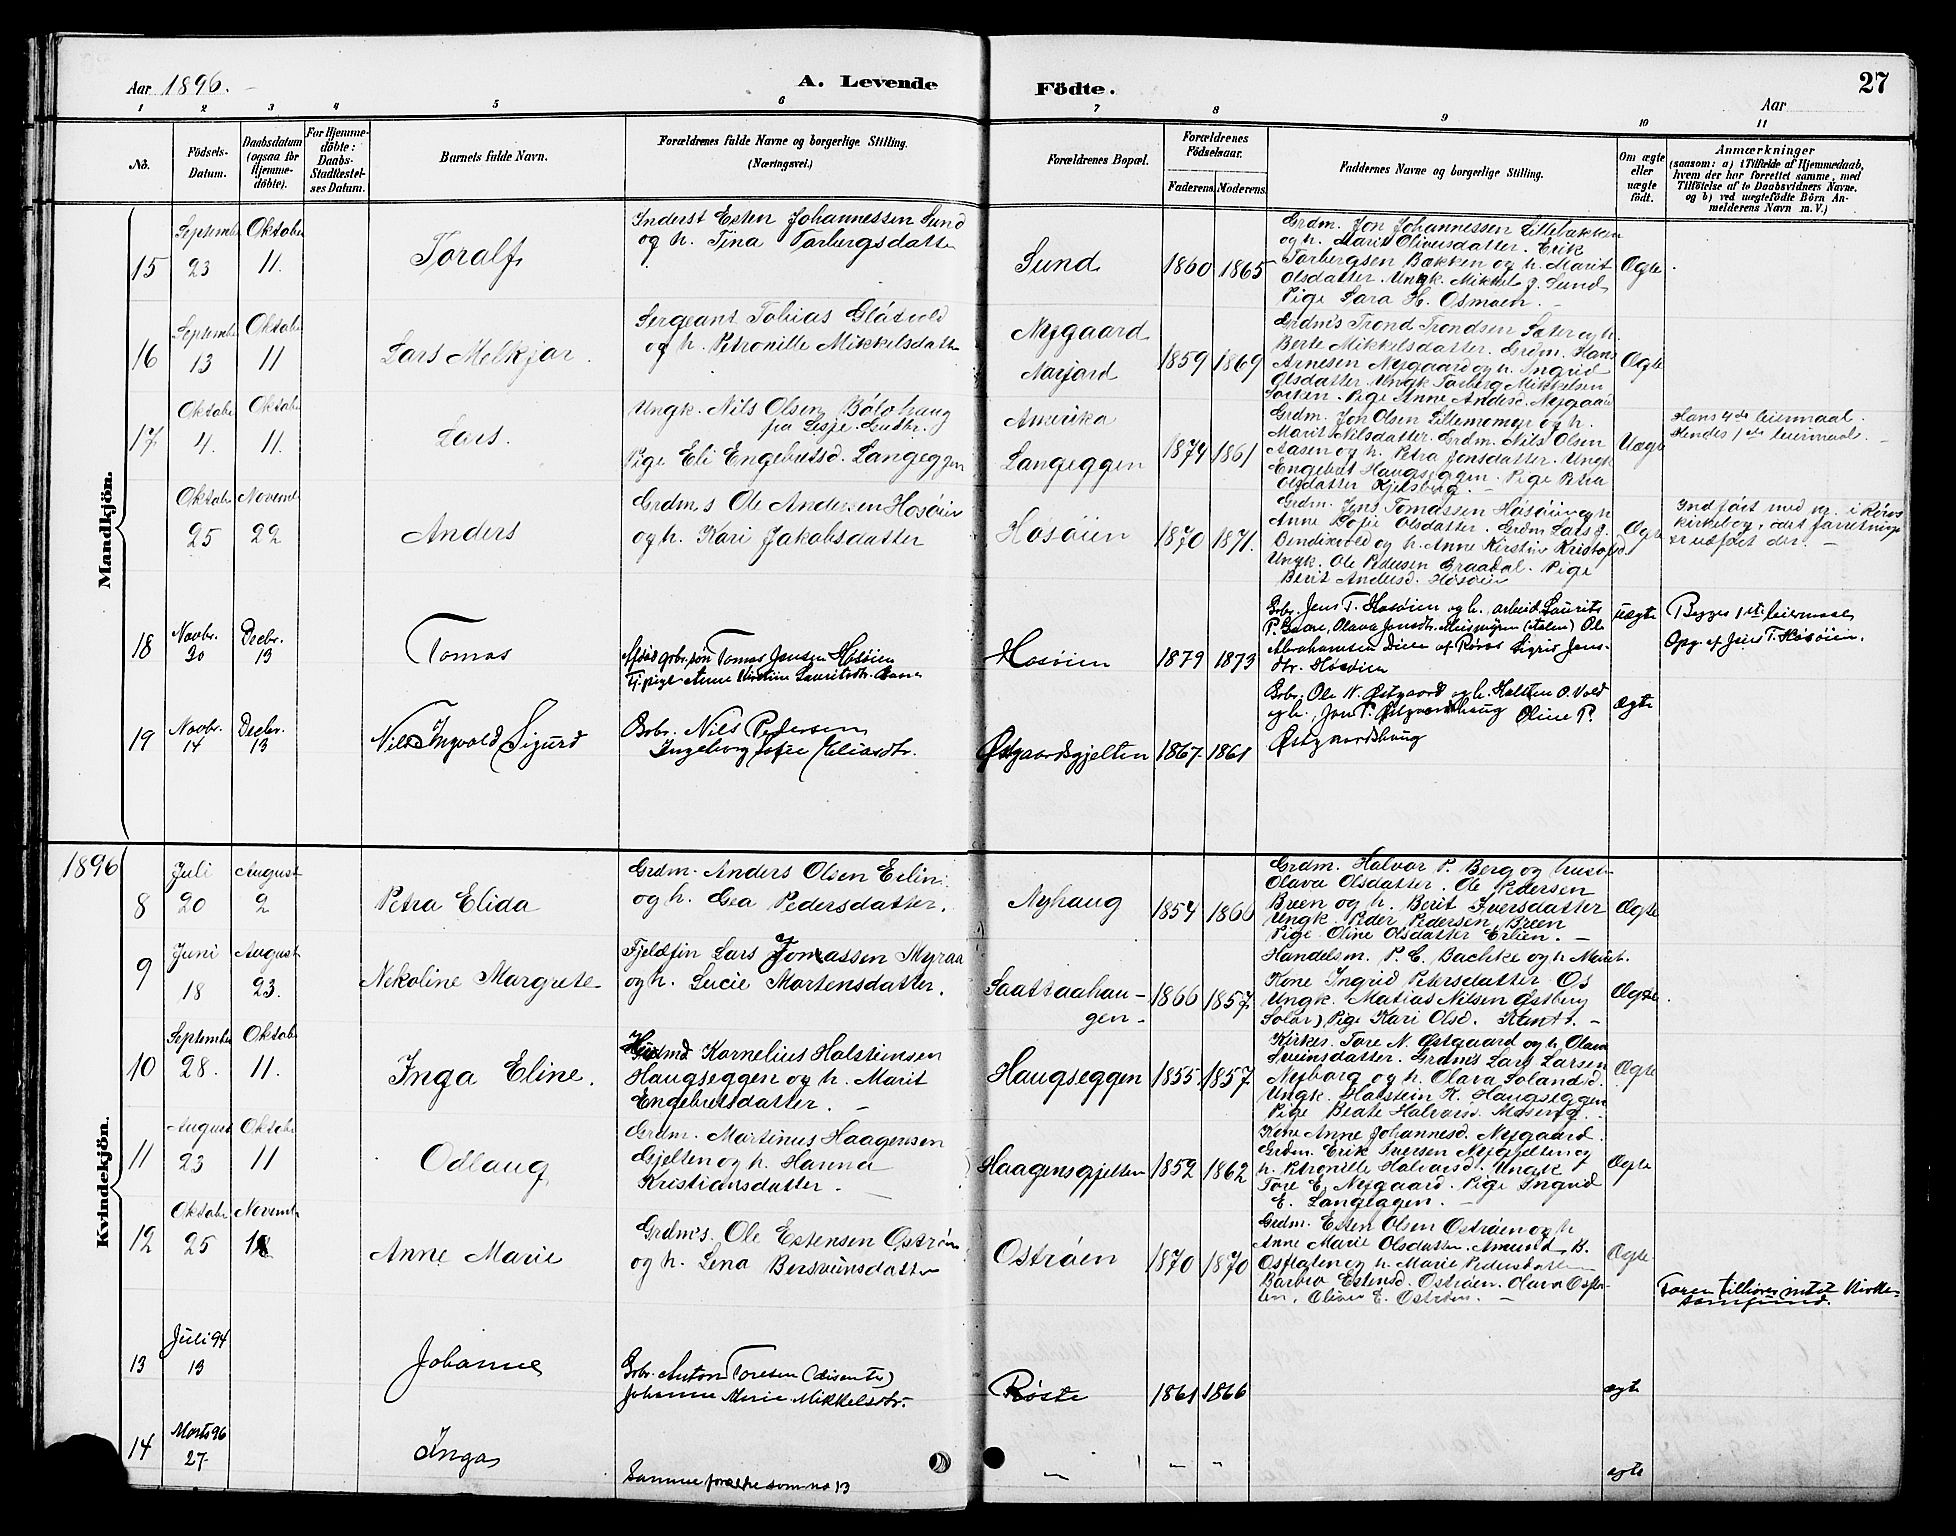 Aar 1896.
A. Levende
Födte.
27
Aar
1 2 3 4 5 6 7 8 9 10 11
No.
Födsels-Datum.
Daabsdatum (ogsaa for Hjemmedöbte).
For Hjemmedöbte: Daabs-Stadfæstelses Datum.
Barnets fulde Navn.
Forældrenes fulde Navne og borgerlige Stilling. (Næringsvei.)
Forældrenes Bopæl.
Forældrenes Födselsaar.
Faderens. Moderens.
Faddernes Navne og borgerlige Stilling.
Om ægte eller uægte födt.
Anmærkninger
(saasom: a) i Tilfælde af Hjemmedaab,
hvem der har forrettet samme, med
Tilföielse af to Daabsvidners Navne.
og b) ved uægtefödte Börn An-
melderens Navn m. V.)
Mandkjön.
15
September 23
Oktober 11.
Toralf
Inderst Esten Johannessen Sund
og h. Tina Torbergsdatter
Sund
1860 1865
Grdm. Jon Johannessen Lillebakken
og h. Marit Oliversdatter. Erik
Torbergsen Bakken og h. Marit
Olsdatter. Ungk. Mikkel J. Sund
Pige Sara H. Osmoen. –
Ægte
16
September 13
Oktober 11
Lars Melkjor.
Sergeant Tobias Glåtvold
og h. Petronille Mikkelsdatter
Nygaard
Narjord
1859 1869
Grdm's Trond Trondsen Sæter og h.
Berte Mikkelsdatter. Grdm. Hans
Arnesen Nygaard og h. Ingrid
Olsdatter. Ungk Torberg Mikkelsen
Pige Anne Andersd. Nygaard
Ægte
17
Oktober 4.
Oktober 11.
Lars.
Ungk. Nils Olsen Bölohaug
fra Lesje. Gudbr.
Pige Eli Engebretsd. Langeggen
Amerika
Langeggen
1874 1861
Grdm. Jon Olsen Lillemomyr og h.
Marit Nilsdatter. Grdm. Nils Olsen
Aasen og h. Petra Jonsdatter. Ungk
Engebret Haugseggen. Pige Petra
Olsdatter Kjelsberg. –
Uægte
Hans 4de leiermaal.
Hendes 1ste leiermaal. –
Oktober 25
November 22
Anders
Grdm's Ole Andersen Hosöien
og h. Kari Jakobsdatter
Hosöien
1870 1871.
Grdm. Jens Tomassen Hosöien og h
Anne Sofie Olsdatter. Grdm Lars J.
Bendixvold og h. Anne Kirstine Kristofsd.
Ungk. Ole Pedersen Graadal. Pige
Berit Andersd. Hosöien
Ægte
Indfört med no. i Röros
kirkebog, da forretningen
er udfört der. –
18
Novbr. 30
Decbr. 13
Tomas
Afdöd gbr. sön Tomas Jensen Hosöien
Tj. pige Anne Kirstine Lauritsdtr.
Hosöien
1879 1873
Gbr. Jens T. Hosöien og h., arbeid. Laurits
P. Olava Jensdtr. Ole
Abrahamsen af Röros Sigrid Jens-
dtr. Hosöien
uægte
Begges 1ste leiermaal
Opg. af Jens T. Hosöien.
19
Novbr. 14
Decbr. 13
Nils Ingvald Sigurd
Gbr. Nils Pedersen
Ingeborg Sofie Eliasdtr.
Østgaardsgjelten
1867. 1861
Gbr. Ole N. Østgaard og h. Halsten O. Vold
og h., Jon P. Østgaardshaug Oline P.
Østgaardshaug
ægte
1896
Kvindekjön.
8
Juli 20
August 2
Petra Elida
Grdm. Anders Olsen Erlien
og h. Gea Pedersdatter.
Nyhaug
1854 1860
Grdm. Halvor P. Berg og hust.
Olava Olsdatter. Ole Pedersen
Breen og h. Berit Iversdatter
Ungk. Peder Pedersen Breen
Pige Oline Olsdatter Erlien. –
Ægte
9
Juni 18
August 23.
Nekoline Margrete
Fjeldfin Lars Jonassen Myraa
og h. Lucie Mortensdatter.
Saattaahau-
gen –
1866 1857
Handelsm. P. E. Bachke og h. Marit.
Kone Ingrid Petersdatter Os
Ungk. Matias Nilsen Østberg
Solör) Pige Kari Olsd. –
Ægte.
10
September 28.
Oktober 11.
Inga Eline.
Kornelius Halsteinsen
Haugseggen og h. Marit
Engebretsdatter. –
Haugseggen
1855 1857
Kirkes. Tore N. Østgaard og h. Olava
Sveinsdatter. Grdm's Lars Larsen
Nyborg og h. Olava
Ungk. Halstein K. Haugseggen
Pige Beate Halvorsd. Moseng. –
Ægte
11
August 23
Oktober 11
Odlaug
Grdm. Martinus Haagensen
Gjelten og h. Hanna
Kristiansdatter. –
Haagensgjelten
1859 1862
Kone Anne Johannesd. Nygaard.
Grdm. Erik Iversen Nygjelten og
h. Petronille Halvorsd. Ungk
Tore E. Nygaard. Pige Ingrid
E. Langeggen. –
Ægte
12
Oktober 25
November
Anne Marie
Grdm's. Ole Estensen Öströen
og h. Lena Bersveinsdatter
Oströen
1870 1870
Grdm. Esten Olsen Oströen og h
Anne Marie Olsdatter. Amund B.
og h. Marie Pedersdatter
Barbro Estensd. Oströen. Olava
Oliver E. Oströen. –
Ægte
13
Juli 94 13
Johanne
Gbr. Anton Toresen (disenter)
Johanne Marie Mikkelsdtr.
Röste
1861 1866
ægte
Faren tilhörer intet Kirke-
samfund.
14
Marts 96 27.
Inga
Samme forældre som no 13
" " "
ægte